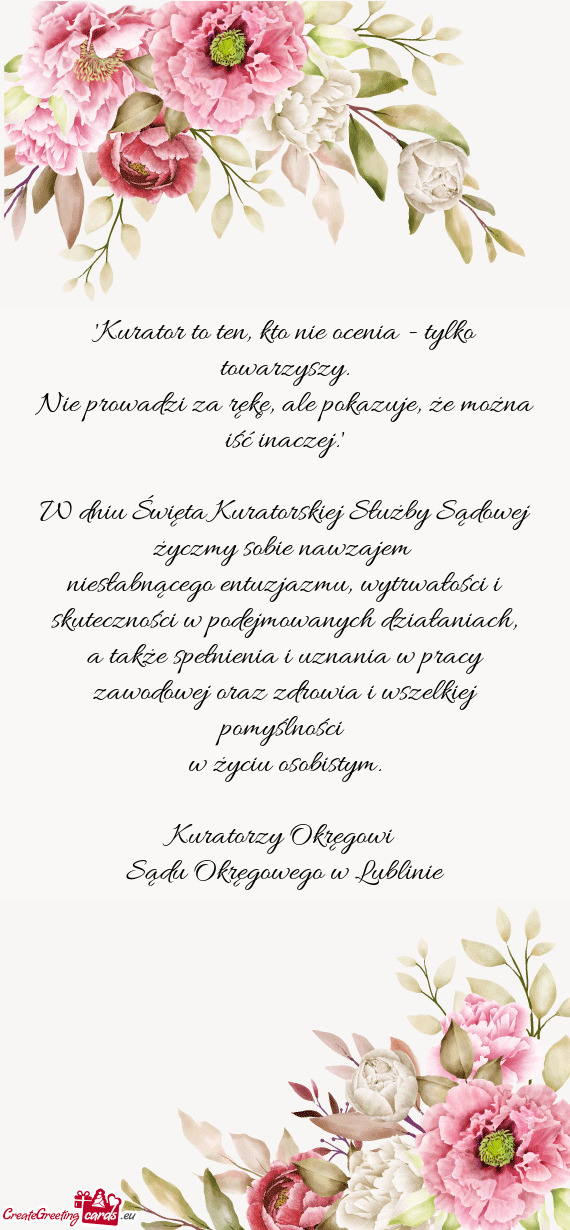 'Kurator to ten, kto nie ocenia - tylko
towarzyszy.
Nie prowadzi za rękę, ale pokazuje, że można
iść inaczej.'
W dniu Święta Kuratorskiej Służby Sądowej
życzmy sobie nawzajem
niesłabnącego entuzjazmu, wytrwałości i
skuteczności w podejmowanych działaniach,
a także spełnienia i uznania w pracy
zawodowej oraz zdrowia i wszelkiej
pomyślności
w życiu osobistym.
Kuratorzy Okręgowi
Sądu Okręgowego w Lublinie
CreateGreeting cards .eu